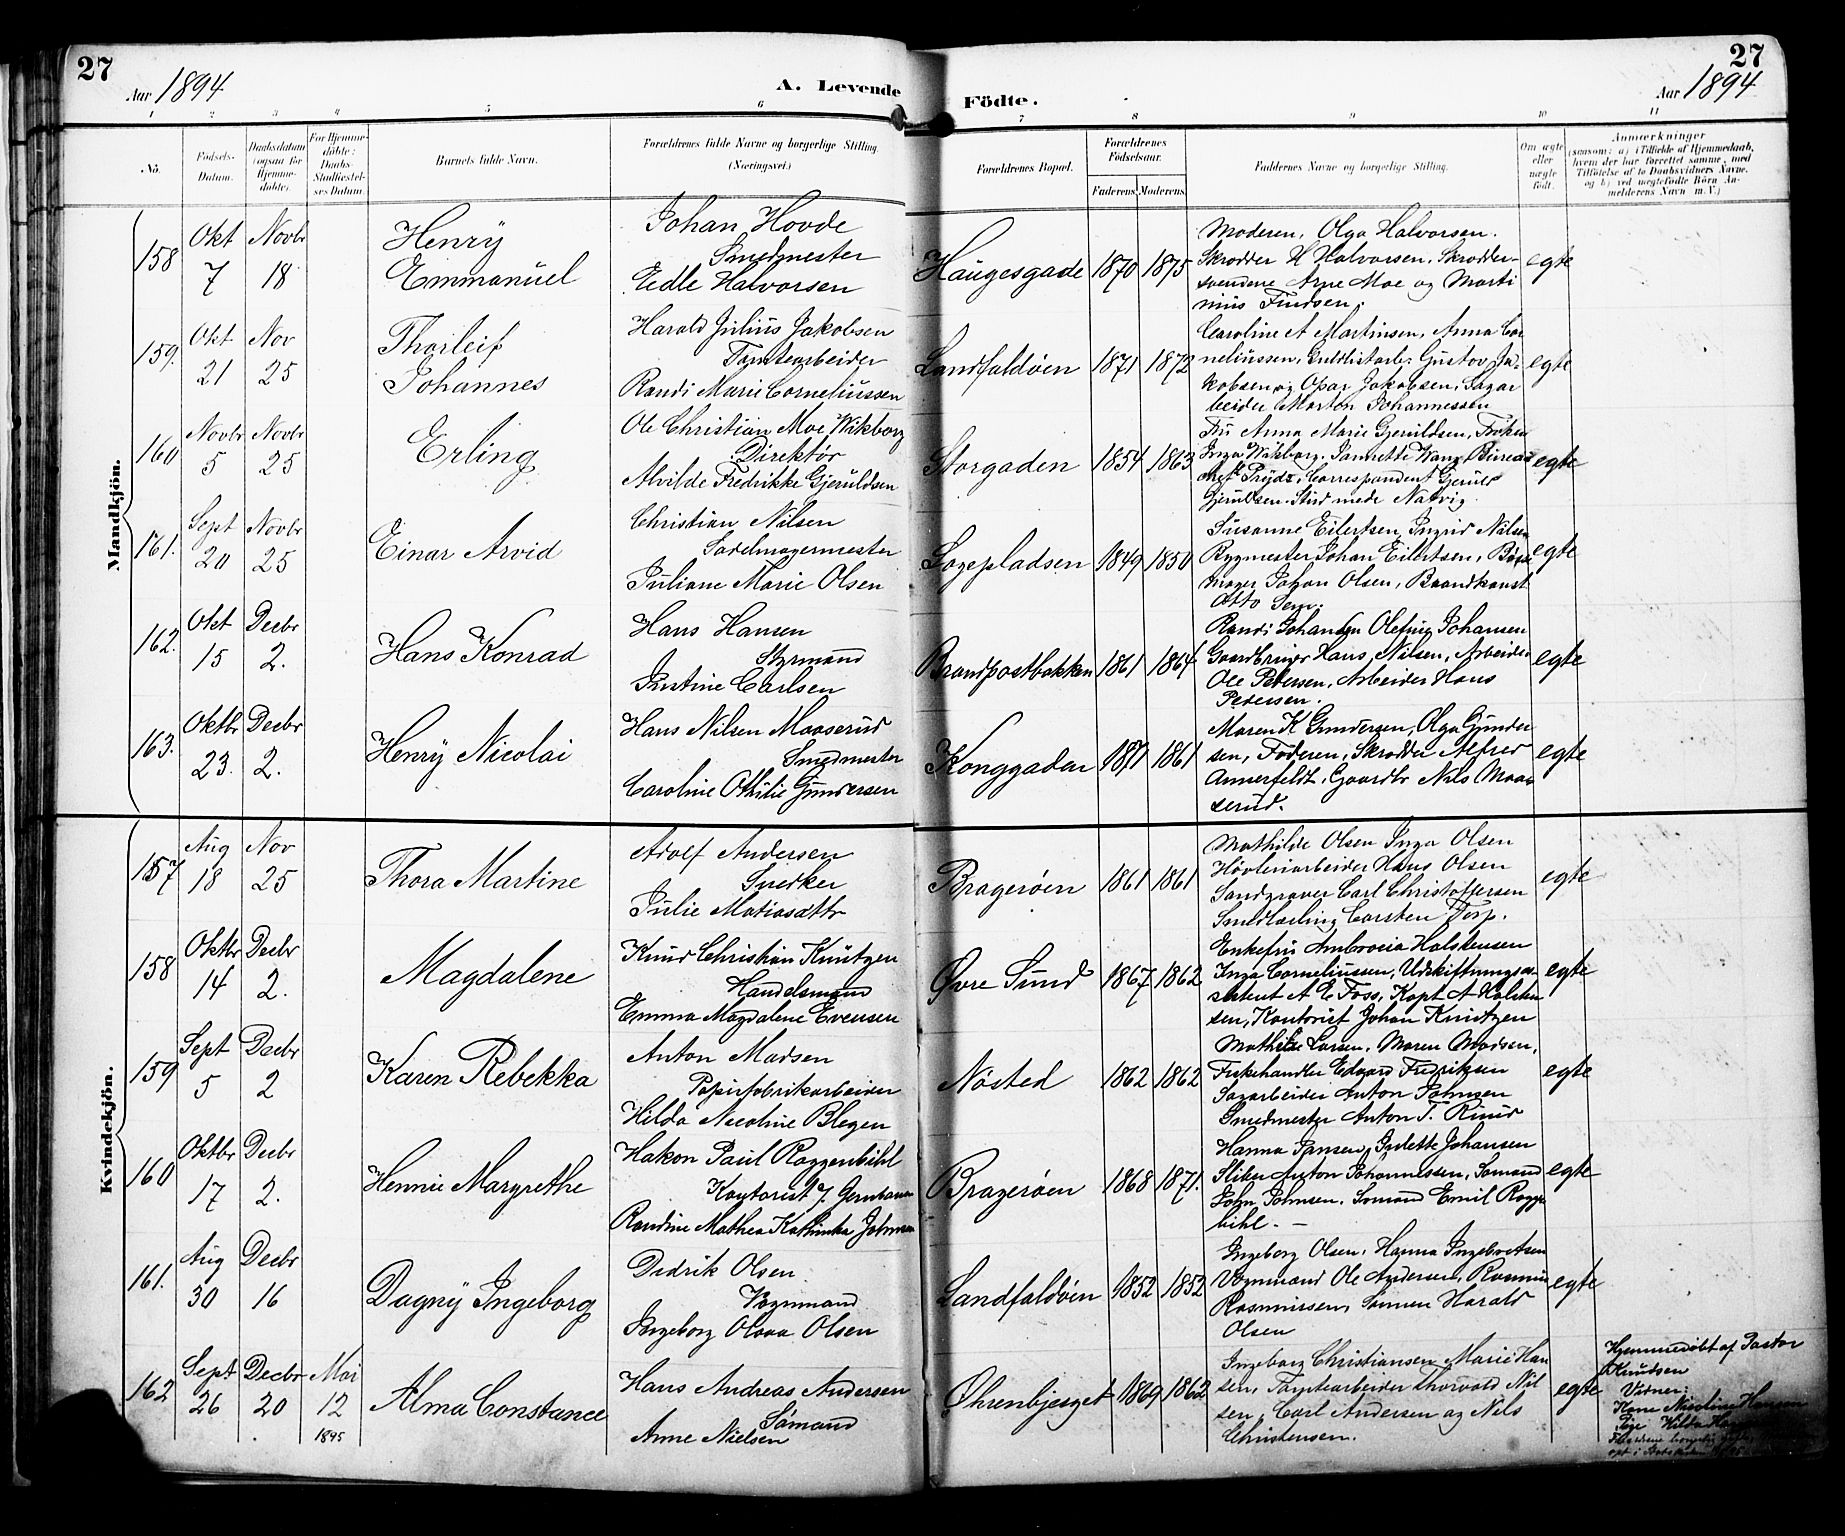 27
Aar 1894
A. Levende
Födte.
27
Aar 1894
1 2 3 4 5 6 7 8 9 10 11
No.
Födsels-
Datum.
Daabsdatum
(ogsaa for
Hjemme-
döbte).
For Hjemme-
döbte:
Daabs-
Stadfæstel-
ses Datum.
Barnets fulde Navn.
Forældrenes fulde Navne og borgerlige Stilling.
(Næringsvei.)
Forældrenes Bopæl.
Forældrenes
Födselsaar.
Faderens. Moderens.
Faddernes Navne og borgerlige Stilling.
Om ægte
eller
uægte
født.
Anmærkninger
(saasom: a) i Tilfælde af Hjemmedaab,
hvem der har forrettet samme, med
Tilföielse af to Daabsvidners Navne,
og b) ved uægtefödte Börn An-
melderens Navn m. V.)
Mandkjön.
158
Okt
7
Novbr
18
Henry
Emmanuel
Johan Hovde
Smedmester
Edle Halvorsen
Haugesgade
1870
1875
Moderen, Olga Halvorsen.
Skrædder H Halvorsen, Skrædder-
svendene Arne Moe og Marti
nius Findsen.
egte
159.
Okt
21
Nov
25
Thorleif
Johannes
Harald Julius Jakobsen
Tomtearbeider
Randi Marie Corneliussen
Landfaldöen
1871
1872
Caroline A Martinsen, Anna Cor
neliussen, Guldlistarb. Gustav Ja-
kobsen og Oskar Jakobsen, Sagar
beider Morten Johannessen
egte
160
Novbr
5
Novbr
25
Erling
Ole Christian Moe Wikborg
Direktör
Alvilde Fredrikke Gjeruldsen
Storgaden
1854
1863
Fru Anna Marie Gjeruldsen, Fröken
Inga Wikborg, Jannette Wang, Bureau
chef Prydz, Correspondent Gjerul
Gjeruldsen. Stud med Natvig.
egte
161.
Sept
20
Novbr
25
Einar Arvid
Christian Nilsen
Sadelmagermester
Juliane Marie Olsen
Sagepladsen
1849
1850
Susanne Eilertsen, Ingrid Nilsen
Bygmester Johan Eilertsen, Börste
mager Johan Olsen, Brandkonst
Otto Sem.
egte
162.
Okt
15
Decbr
2.
Hans Konrad
Hans Hansen
Styrmand
Justine Carlsen
Brandpostbakken
1861
1864
Randi Johansen Olefine Johansen
Gaardbruger Hans Nilsen, Arbeider
Ole Pedersen, Arbeider Hans
Pedersen.
egte
163.
Oktbr
23.
Decbr
2.
Henry Nicolai
Hans Nilsen Maaserud
Smedmester
Caroline Othilie Gundersen
Konggaden
1871
1861
Maren K Gundersen, Olga Gunder
sen, Faderen, Skrædder Alfred
Annerfeldt, Gaardbr Nils Maa
serud.
egte
Kvindekjön.
157
Aug
18
Nov
25
Thora Martine
Adolf Andersen
Snedker
Julie Matiasdttr
Bragerøen
1861
1861
Mathilde Olsen Inga Olsen
Hövleriarbeider Hans Olsen
Sandgraver Carl Christoffersen
Smedlærling Carsten Torp.
egte
158
Oktbr
14
Decbr
2.
Magdalene
Knud Christian Knutzen
Handelsmand
Emma Magdalene Evensen
Øvre Sund
1867
1862
Enkefru Ambrosia Halstensen
Inga Corneliussen, Udskiftningsas-
sistent A E Foss, Kapt A Halsten
sen, Kontorist Johan Knutzen
egte
159
Sept
5
Decbr
2
Karen Rebekka
Anton Madsen
Papirfabrikarbeider
Hilda Nicoline Blegen
Nøsted
1862
1862
Mathilde Larsen, Maren Madsen,
Fiskehandler Edvard Fredriksen
Sagarbeider Anton Johnsen
Smedmester Anton T. Ruud
egte
160
Oktbr
17
Decbr
2.
Hennie Margrethe
Hakon Paul Roggenbihl
Kontorist J. Jernbanen
Randine Mathea Kathinka Johnsen
Bragerøen
1868
1871.
Hanna Jansen, Julette Johansen
Sliber Anton Johannessen, Sömand
John Johnsen, Sömand Emil Rogge
bihl. –
egte
161.
Aug
30
Decbr
16
Dagny Ingeborg
Didrik Olsen
Vognmand
Ingeborg Olava Olsen
Landfaldöen
1852
1852
Ingeborg Olsen, Hanna Ingebretsen
Vognmand Ole Andersen, Rasmus
Rasmussen, Sönnen Harald
Olsen
egte
162
Sept
26
Decbr
20
Mai
12
1895
Alma Constance
Hans Andreas Andersen
Sömand
Anne Nielsen
Øhrenbjerget
1869
1862
Ingeborg Christiansen Marie Han
sen, Tomtearbeider Thorvald Nil
sen, Carl Andersen og Nils
Christensen.
egte
Hjemmedöbt af Pastor
Knudsen
Vidner:
Kone Nicoline Hansen
Pige Hilda